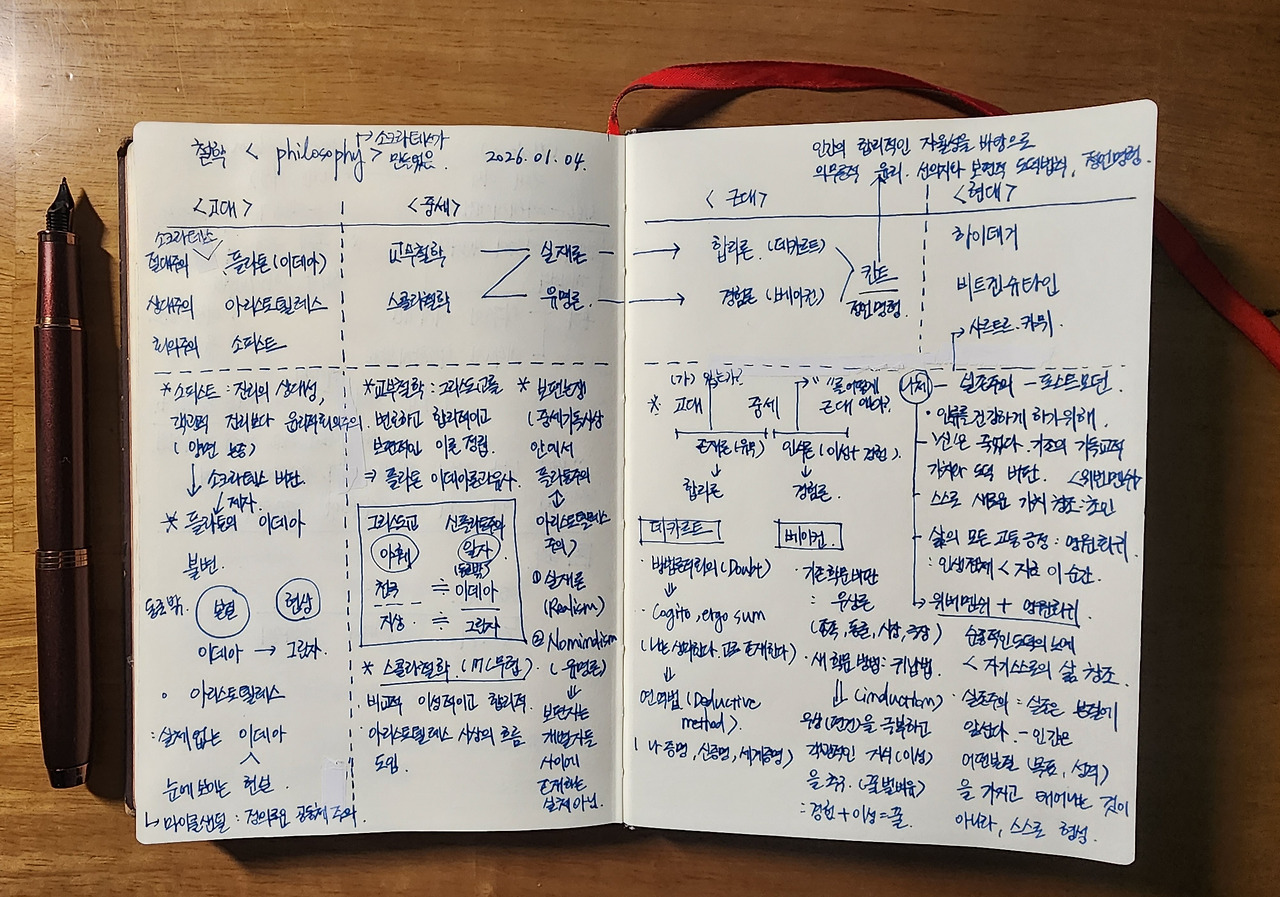 철학 < philosophy > → 소크라테스가
만들었음.
2026. 01. 04.
<고대>
<중세>
소크라테스
절대주의 플라톤(이데아)
상대주의 아리스토텔레스
회의주의 소피스트
교부철학
스콜라철학
실재론
유명론
* 소피스트 : 진리의 상대성,
객관적 진리보다 윤리적회의주의.
(양면 논증)
↓ 소크라테스 비판
↙ 제자.
* 플라톤의 이데아
불변.
동굴 밖. 본질 현상
이데아 → 그림자.
◦ 아리스토텔레스
: 실체 없는 이데아
눈에 보이는 현실
↳ 마이클샌델 : 정의로운 공동체 주의
* 교부철학 : 그리스도교를
변호하고 합리적이고
보편적인 이론 정립.
⇒ 플라톤 이데아론과 유사.
그리스도교 신플라톤주의
야훼 일자
(동굴밖)
천국 ≒ 이데아
지상 ≒ 그림자
* 스콜라철학. (11C 무렵)
비교적 이성적이고 합리적.
아리스토텔레스 사상의 흐름
도입.
* 보편논쟁
(중세기독사상
안에서
플라톤주의
⇕
아리스토텔레스
주의)
① 실재론
(Realism)
② Nominalism
(유명론)
⇓
보편자는
개별자들
사이에
존재하는
실체 아님.
인간의 합리적인 자율성을 바탕으로
의무론적 윤리. 선의지와 보편적 도덕법칙, 정언명령.
<근대>
<현대>
합리론. (데카르트)
경험론 (베이컨)
칸트
정언명령.
하이데거
비트겐슈타인
→ 사르트르. 카뮈.
(가) 있는가?
→ "를 어떻게
* 고대 중세 근대 아나?
존재론(유무) 인식론 (이성+경험).
↓ ↓
합리론 경험론.
데카르트
· 방법론적회의 (Doubt)
⇓
· Cogito, ergo sum
(나는 생각한다. 고로 존재한다)
⇓
연역법 (Deductive
method).
(나 증명, 신증명, 세계증명)
베이컨.
· 기존 학문 비판
: 우상론
(종족, 동굴, 시장, 극장)
· 새 학문 방법 : 귀납법.
⇓ (induction)
우상(편견)을 극복하고
객관적인 지식(이성)
을 추구. (꿀벌비유)
: 경험 + 이성 = 꿀.
니체 - 실존주의 - 포스트모던.
· 인류를 건강하게 하기위해.
- '신'은 죽었다. 기존의 기독교적
가치와 도덕 비판. <위버멘쉬>
- 스스로 새로운 가치 창조 : 초인
- 삶의 모든 고통 긍정 : 영원회귀
: 인생전체 < 지금 이 순간.
→ 위버멘쉬 + 영원회귀
순종적인 도덕의 노예
< 자기 스스로의 삶 창조.
· 실존주의 : 실존은 본질에
앞선다. - 인간은
어떤본질 (목적, 성격)
을 가지고 태어나는 것이
아니라, 스스로 형성.